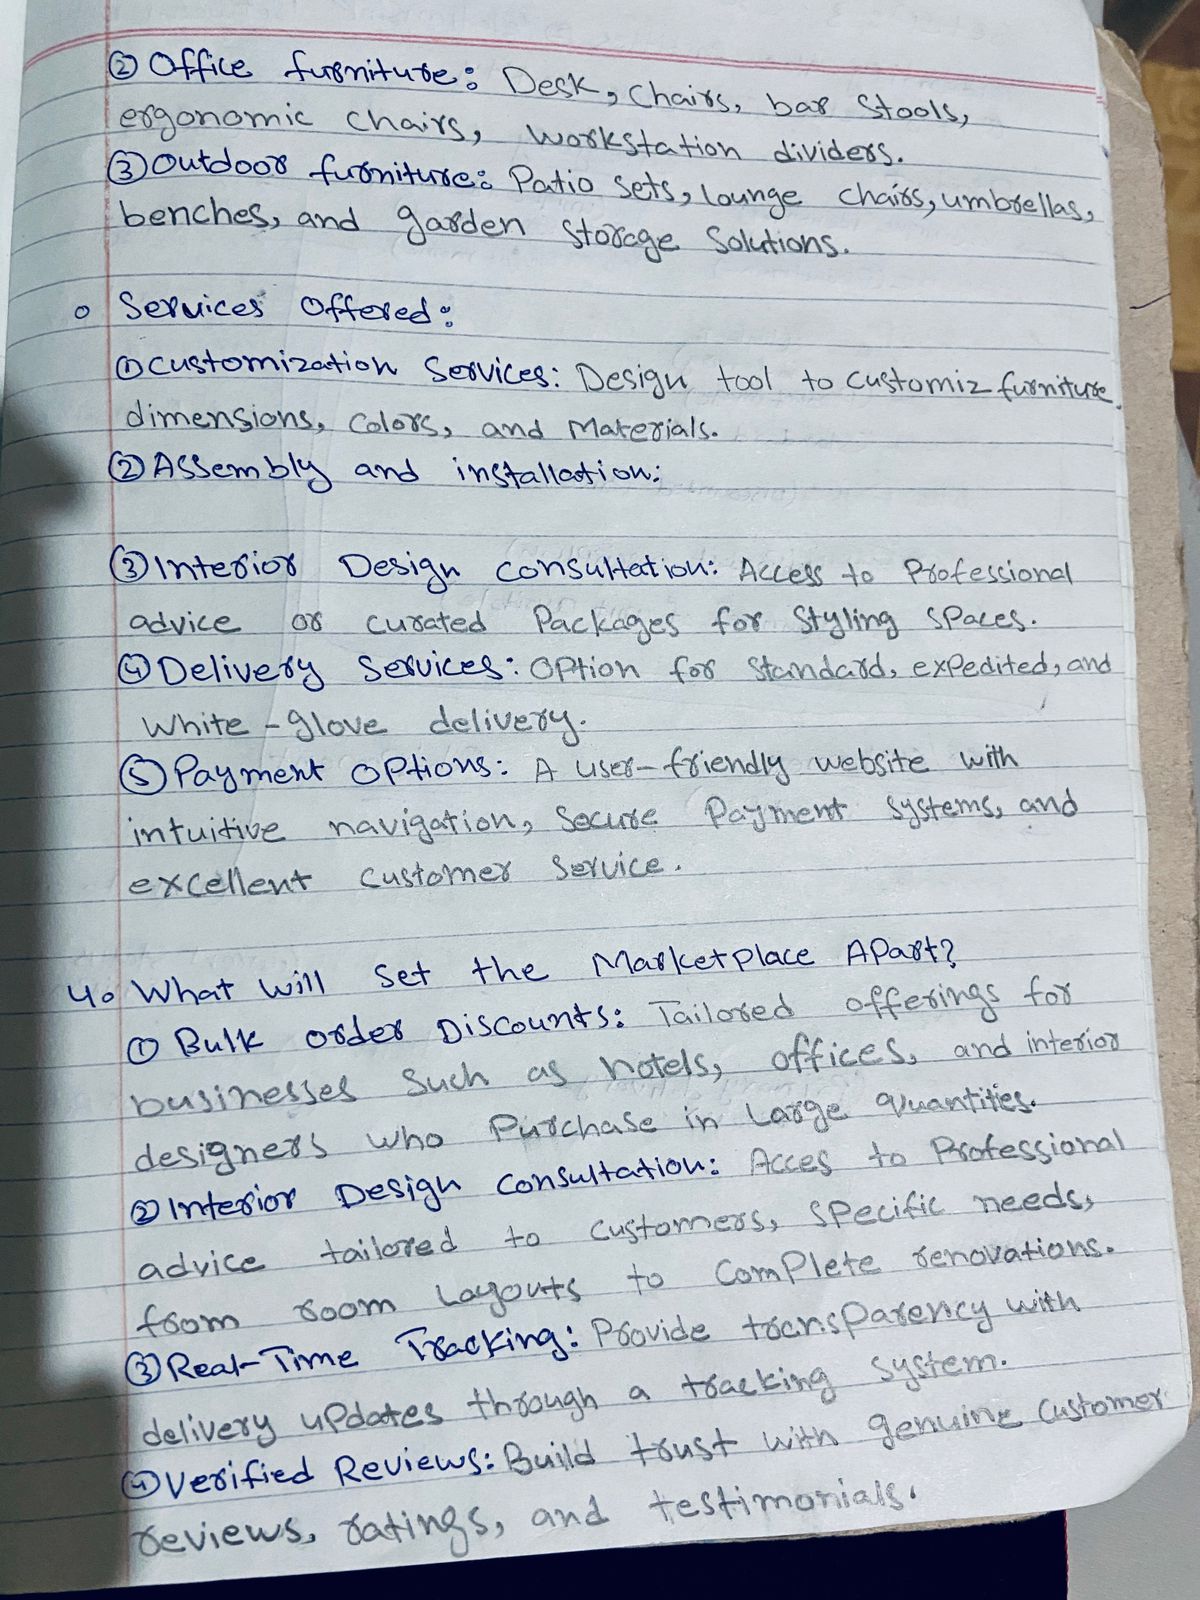 ② Office furniture: Desk, Chairs, bar Stools,
ergonomic chairs, workstation dividers.
③ Outdoor furniture: Patio sets, lounge chairs, umbrellas,
benches, and garden storage Solutions.
o Services Offered:
① Customization Services: Design tool to customiz furniture
dimensions, Colors, and Materials.
② Assembly and installation:
③ Interior Design consultation: Access to Professional
advice or curated Packages for Styling spaces.
④ Delivery Services: Option for Standard, expedited, and
White-glove delivery.
⑤ Payment Options: A user-friendly website with
intuitive navigation, Secure Payment systems, and
excellent customer Service.
4. What will Set the Marketplace Apart?
① Bulk order Discounts: Tailored offerings for
businesses Such as hotels, offices, and interior
designers who Purchase in Large quantities.
② Interior Design Consultation: Acces to Professional
advice tailored to customers, specific needs,
from room Layouts to complete renovations.
③ Real-Time Tracking: Provide transparency with
delivery updates through a tracking system.
④ Verified Reviews: Build trust with genuine customer
reviews, ratings, and testimonials.